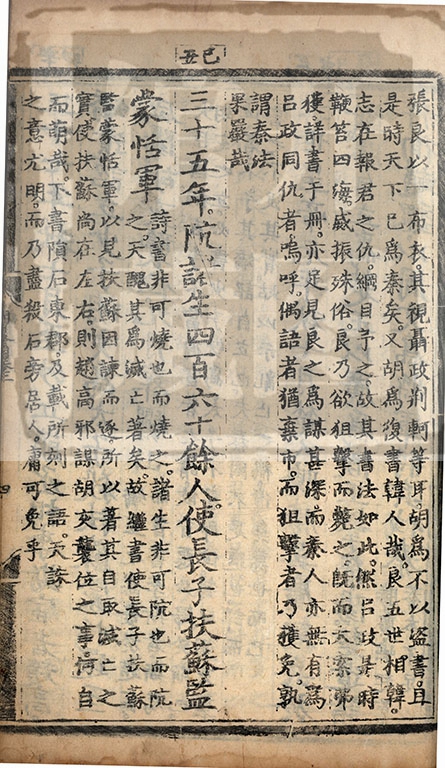 己丑
張良以一布衣其視聶政荆軻等耳胡爲不以盗書且
是時天下已爲秦矣又胡爲復書韓人哉良五世相韓
志在報君之仇綱目予之故其書法如此然吕政是時
鞭笞四海威振殊俗良乃欲狙擊而斃之既而大索弗
獲詳書于冊亦足見良之爲謀甚深而秦人亦無有爲
吕政同仇者嗚呼偶語者猶棄市而狙擊者乃獲免孰
謂秦法
果嚴哉
三十五年阬諸生四百六十餘人使長子扶蘇監
蒙恬軍
詩書非可燒也而燒之諸生非可阬也而阬
之天醜其爲滅亡著矣故繼書使長子扶蘇
監蒙恬軍以見扶蘇因諫而逐所以著其自取滅亡之
實使扶蘇尚在左右則趙高邪謀胡亥襲位之事何自
而萌哉下書隕石東郡及載所刻之語天誅
之意尤明而乃盡殺石旁居人庸可免乎
四